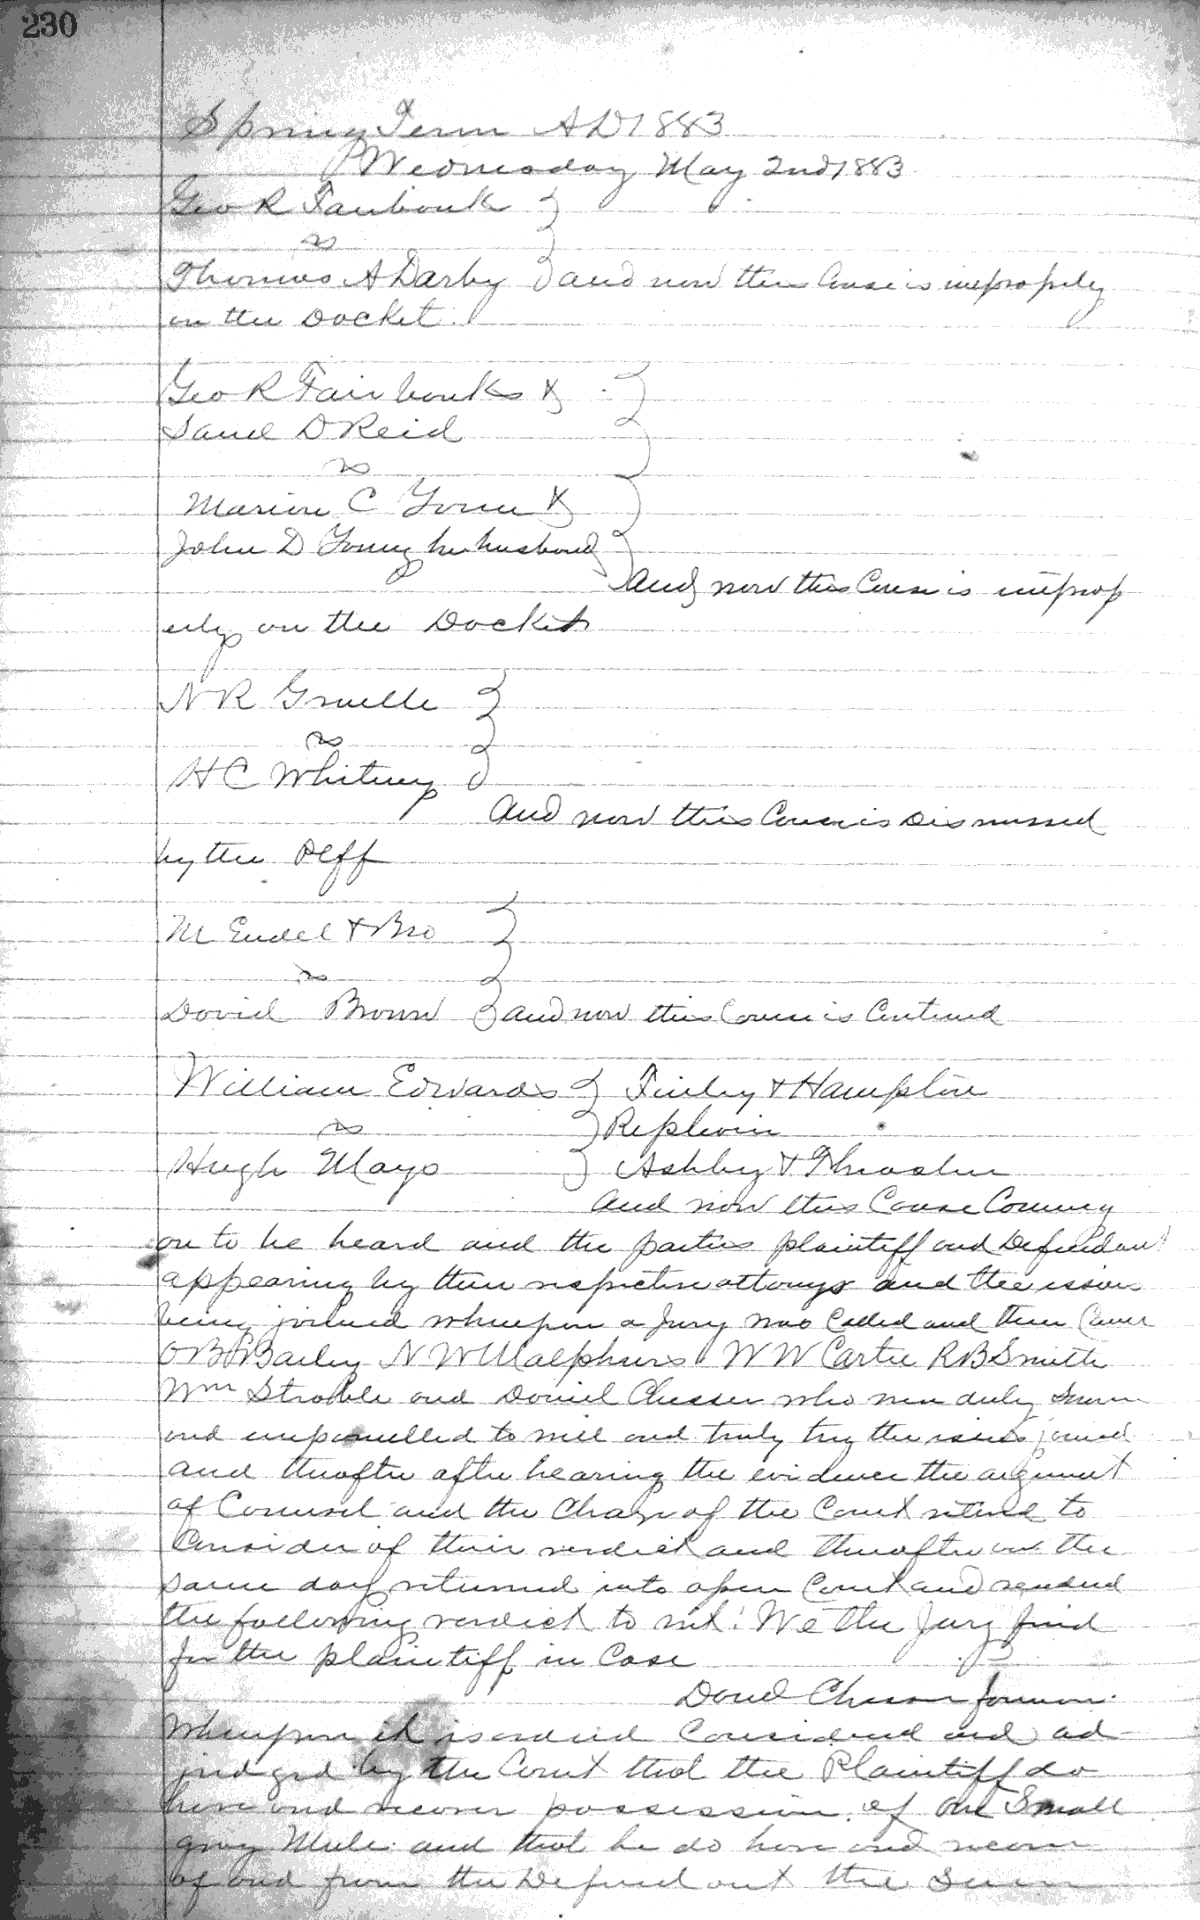 230
Spring Term AD 1883
Wednesday May 2nd 1883
Geo R Fairbank
vs
Thomas A Darby and now this Cause is improperly
on the Docket
Geo R Fairbanks &
Saml D Reid
vs
Marion C Young &
John D Young her husband
And now this Cause is improp
erly on the Docket
N R Gruelle
vs
H C Whitney
And now this Cause is Dismissed
by the Plff
M Endel & Bro
vs
David Brown and now this Cause is Continued
William Edwards Finley & Hampton
vs Replevin
Hugh Mayo Ashby & Thrasher
And now this Cause Coming
on to be heard and the parties plaintiff and Defendant
appearing by their respective attorneys and the issue
being joined whereupon a Jury was Called and then Came
O B Bailey N W Malphurs W W Carter R B Smith
Wm Stroble and Daniel Chesser who were duly Sworn
and empanelled to well and truly try the issues joined
and thereafter after hearing the evidence the argument
of Counsel and the Charge of the Court retired to
Consider of their verdict and thereafter on the
same day returned into open Court and rendered
the following verdict to wit: We the Jury find
for the plaintiff in Case
Danl Chesser foreman.
Whereupon it is ordered Considered and ad
judged by the Court that the Plaintiff do
have and recover possession of one Small
gray Mule and that he do have and recover
of and from the Defendant the Sum